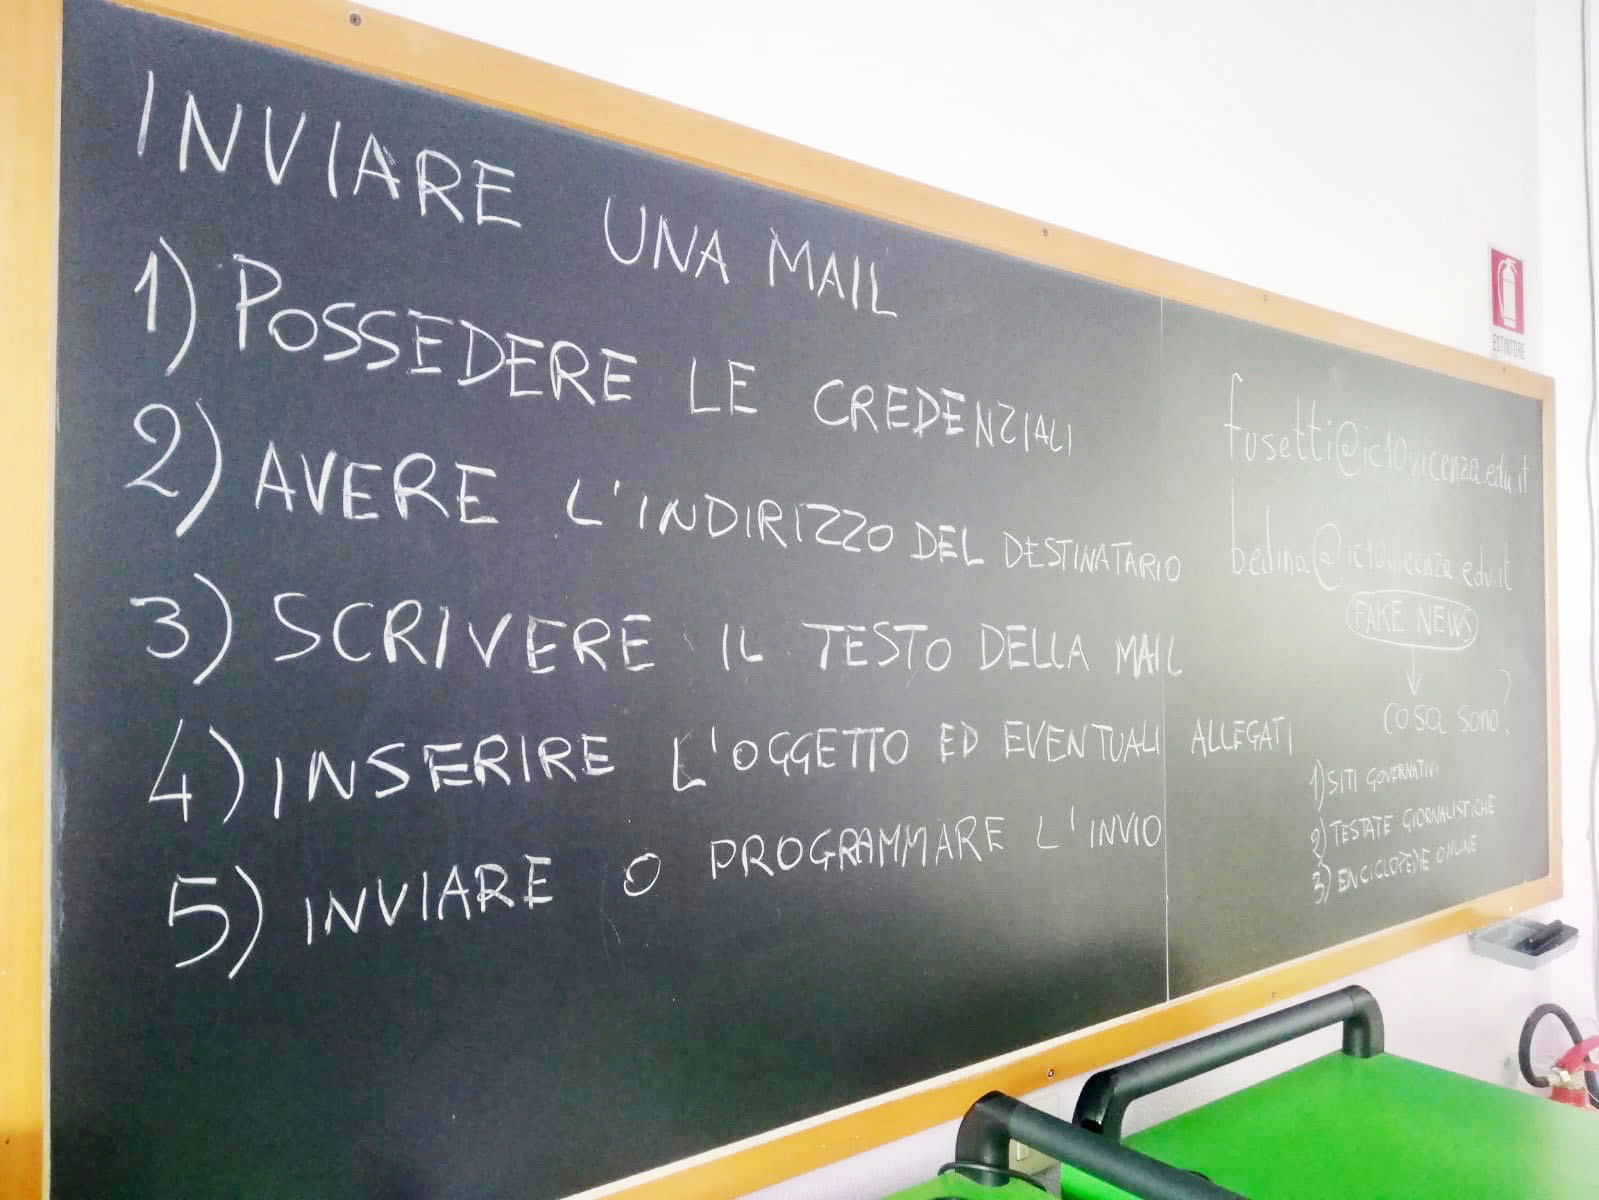 INVIARE UNA MAIL
1) POSSEDERE LE CREDENZIALI
2) AVERE L'INDIRIZZO DEL DESTINATARIO
3) SCRIVERE IL TESTO DELLA MAIL
4) INSERIRE L'OGGETTO ED EVENTUALI ALLEGATI
5) INVIARE O PROGRAMMARE L'INVIO
fusetti@ic10vicenza.edu.it
bedina@ic10vicenza.edu.it
FAKE NEWS
cosa sono?
1) SITI GOVERNATIVI
2) TESTATE GIORNALISTICHE
3) ENCICLOPEDIE ONLINE
ESTINTORE